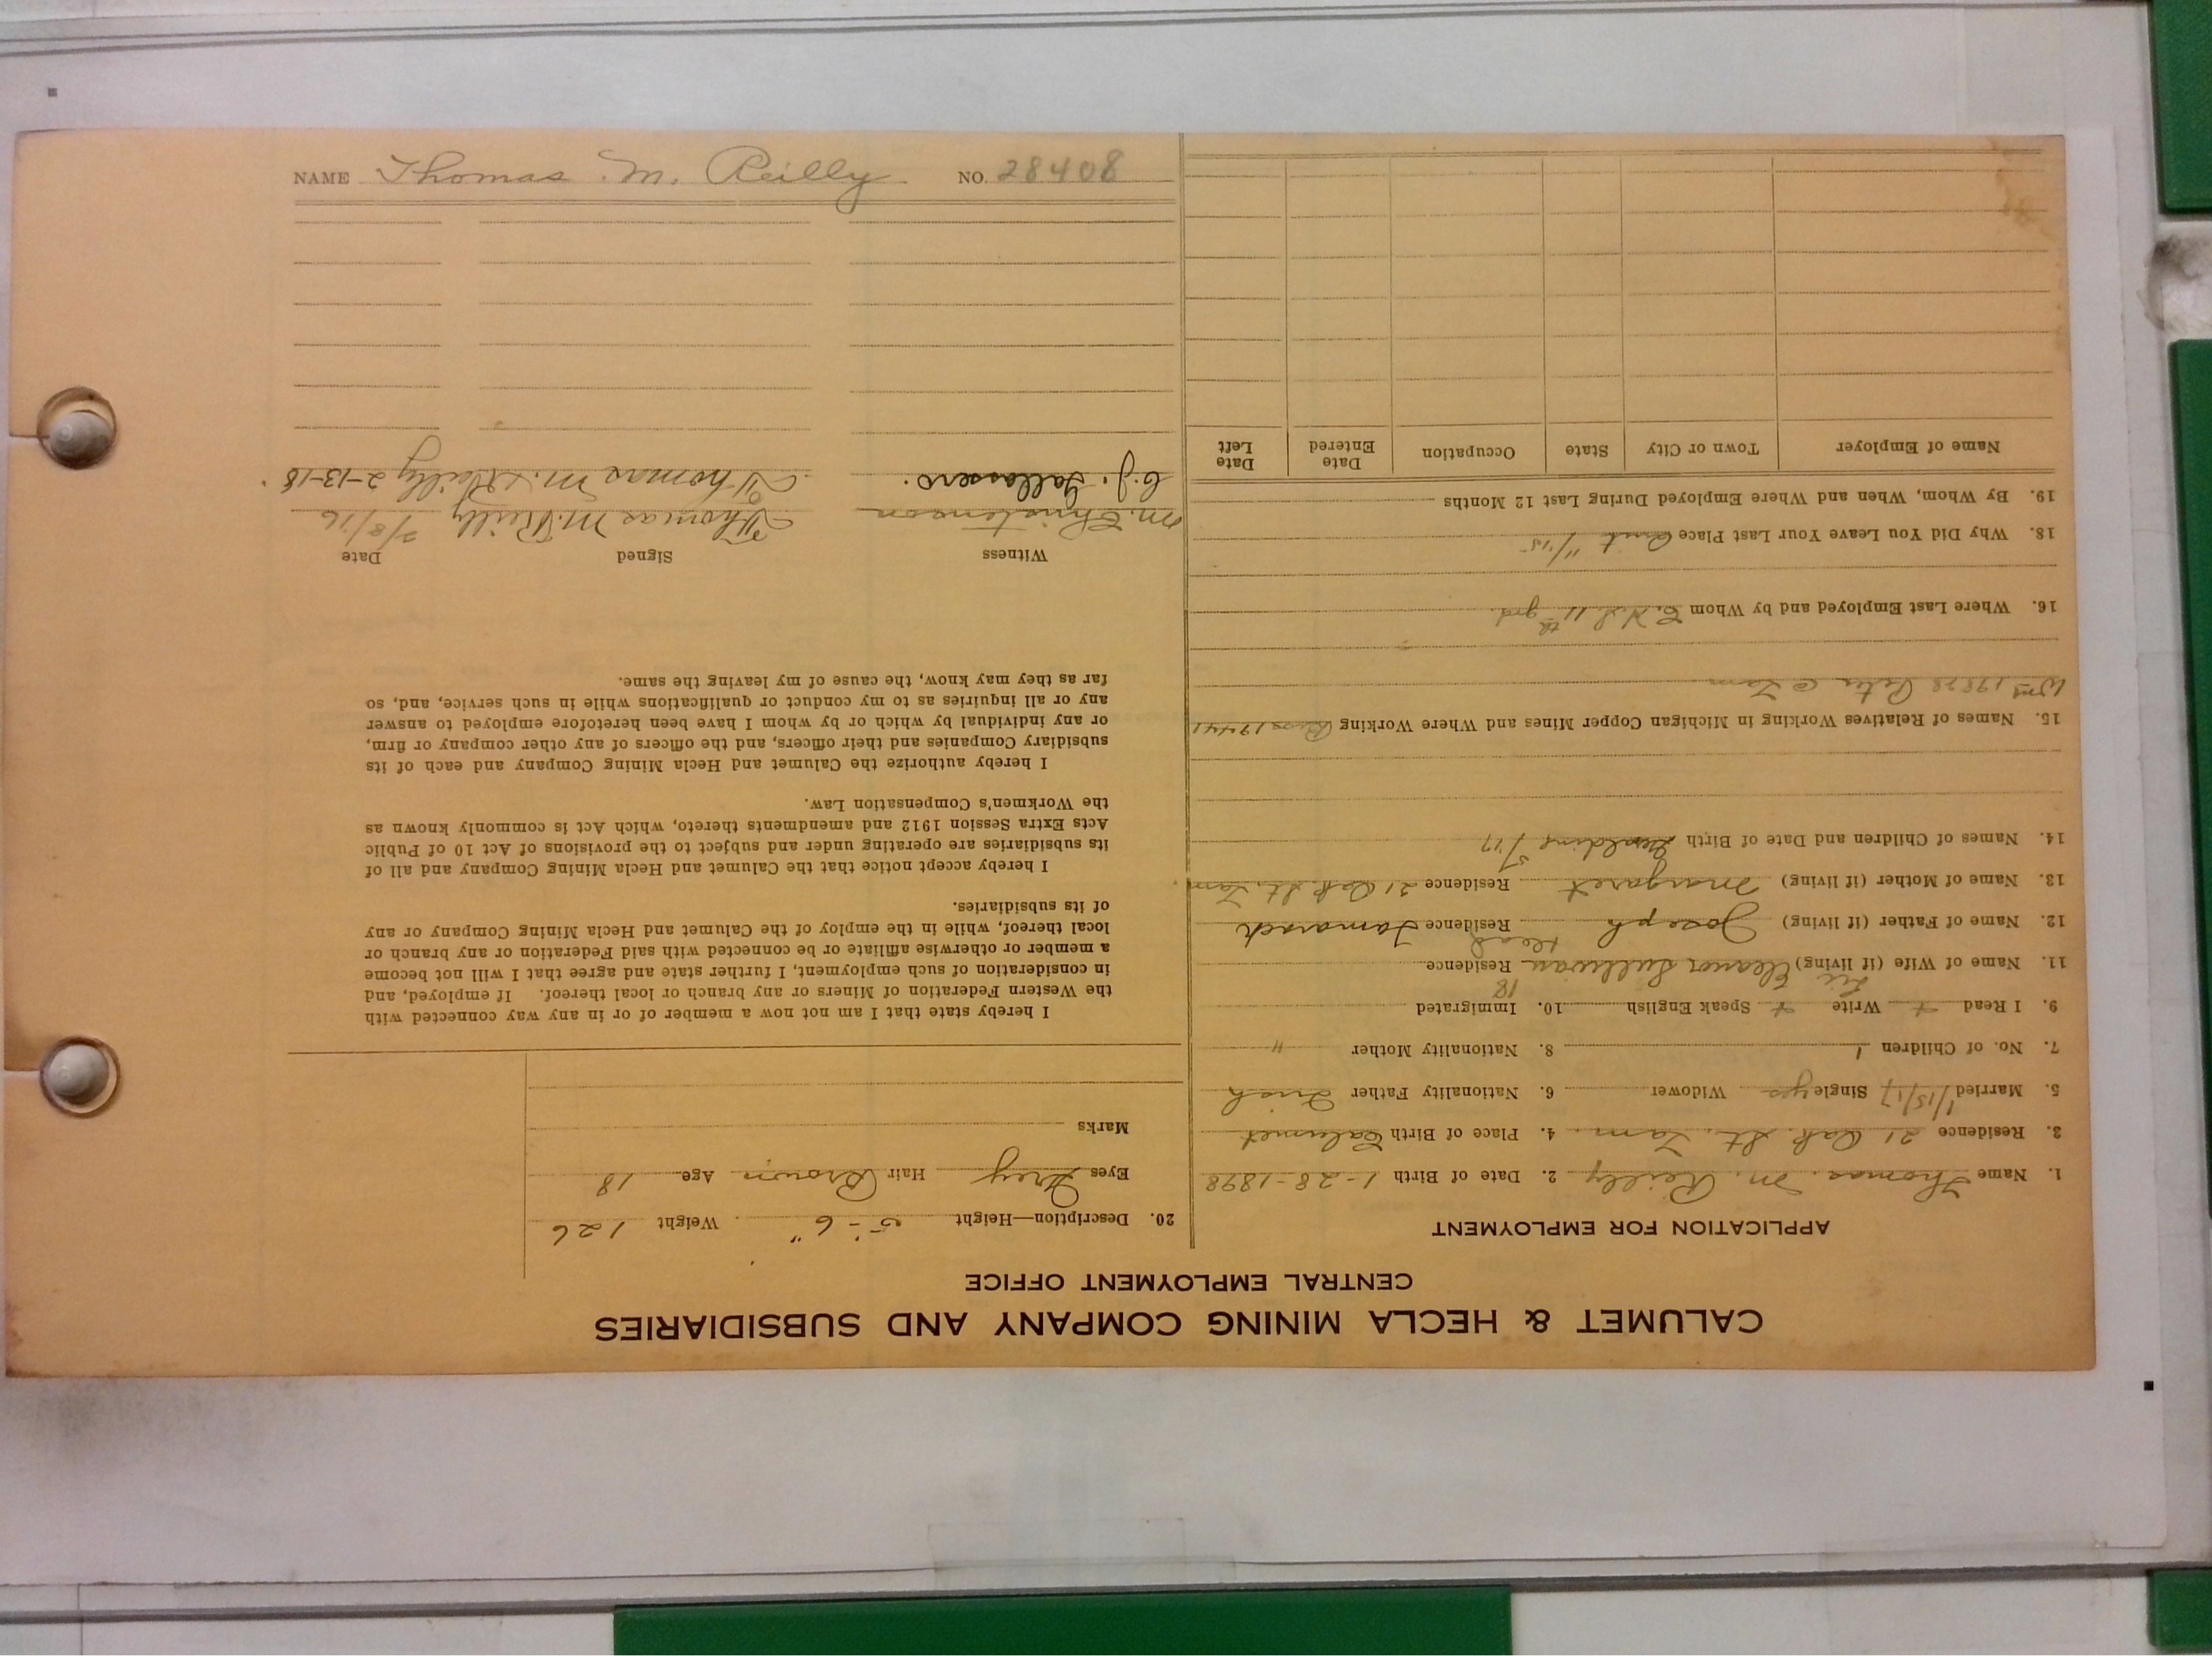 CALUMET & HECLA MINING COMPANY AND SUBSIDIARIES
CENTRAL EMPLOYMENT OFFICE
APPLICATION FOR EMPLOYMENT
1. Name Thomas M. Reilly 2. Date of Birth 1-28-1898
3. Residence 21 Oak St. Tam. 4. Place of Birth Calumet
5. Married 1/15/17 Single yes Widower 6. Nationality Father Irish
7. No. of Children 1 8. Nationality Mother "
9. I Read + Write + Speak English 10. Immigrated
18
11. Name of Wife (if living) Eleanor Sullivan Residence
12. Name of Father (if living) Joseph Residence Tamarack
Dead
13. Name of Mother (if living) Margaret Residence 21 Oak St. Tam
14. Names of Children and Date of Birth Geraldine 5/17
15. Names of Relatives Working in Michigan Copper Mines and Where Working 17441
Wm 17828 Peter @ Tam
16. Where Last Employed and by Whom C.H.S 11th grd.
18. Why Did You Leave Your Last Place 11/15
19. By Whom, When and Where Employed During Last 12 Months
Name of Employer Town or City State Occupation Date Entered Date Left
20. Description—Height 5'-6" Weight 126
Eyes Grey Hair Brown Age 18
Marks
I hereby state that I am not now a member of or in any way connected with
the Western Federation of Miners or any branch or local thereof. If employed, and
in consideration of such employment, I further state and agree that I will not become
a member or otherwise affiliate or be connected with said Federation or any branch or
local thereof, while in the employ of the Calumet and Hecla Mining Company or any
of its subsidiaries.
I hereby accept notice that the Calumet and Hecla Mining Company and all of
its subsidiaries are operating under and subject to the provisions of Act 10 of Public
Acts Extra Session 1912 and amendments thereto, which Act is commonly known as
the Workmen's Compensation Law.
I hereby authorize the Calumet and Hecla Mining Company and each of its
subsidiary Companies and their officers, and the officers of any other company or firm,
or any individual by which or by whom I have been heretofore employed to answer
any or all inquiries as to my conduct or qualifications while in such service, and, so
far as they may know, the cause of my leaving the same.
Witness Signed Date
M. Christenson Thomas M. Reilly 2/8/16
C.J. Gallassero. Thomas M. Reilly 2-13-18
NAME Thomas M. Reilly NO. 28408